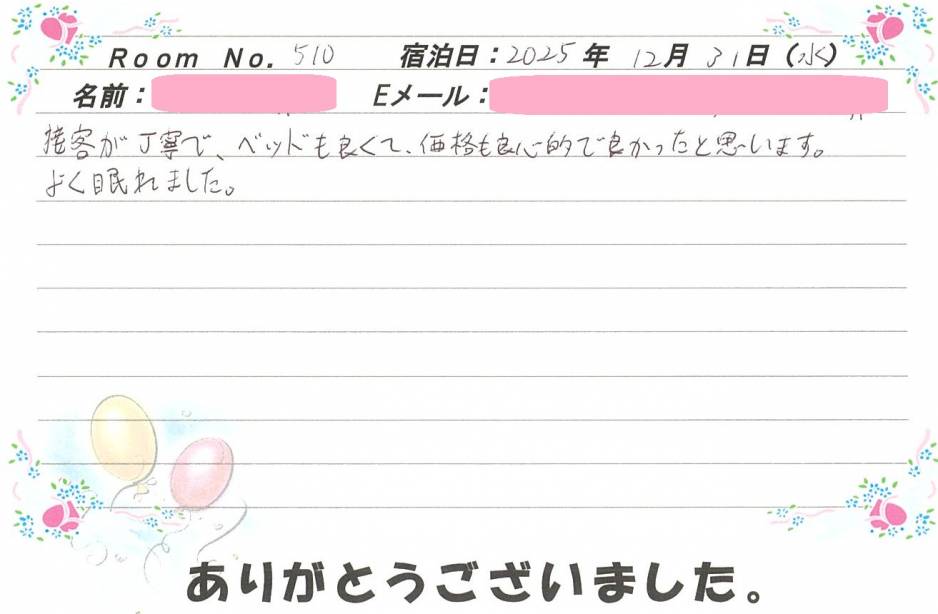 Room No. 510 宿泊日：2025年 12月 31日（水）
名前： Eメール：
接客が丁寧で、ベッドも良くて、価格も良心的で良かったと思います。
よく眠れました。
ありがとうございました。